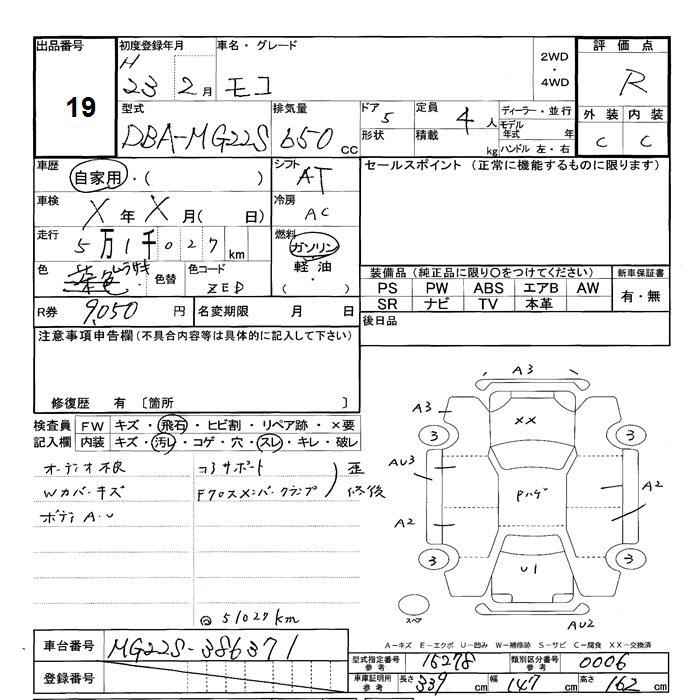 出品番号 初度登録年月 車名・グレード 評価点
19 H 23 2月 モコ 2WD・4WD R
型式 排気量 ドア 5 定員 4人 ディーラー・並行 外装 内装
DBA-MG22S 650 cc 形状 積載 kg モデル年式 年 ハンドル 左・右 C C
車歴 自家用・( ) シフト AT セールスポイント (正常に機能するものに限ります)
車検 X年X月( 日) 冷房 AC
走行 5万1千027 km 燃料 ガソリン
軽油・( )
色 色替 色コード ZED 装備品 (純正品に限り〇をつけてください) 新車保証書
PS PW ABS エアB AW 有・無
SR ナビ TV 本革
R券 9,050円 名変期限 月 日 後日品
注意事項申告欄(不具合内容等は具体的に記入して下さい)
修復歴 有 〔箇所 〕
検査員 FW キズ・飛石・ヒビ割・リペア跡・×要
記入欄 内装 キズ・汚レ・コゲ・穴・スレ・キレ・破レ
オーディオ不良 コアサポート
Wカバーキズ Fクロスメンバークランプ 歪 修後
ボディA・U
A3
A3 XX
3 3
AU3 Pハゲ A2
A2
3 U1 3
スペア AU2
@51027km
A-キズ E-エクボ U-凹み W-補修跡 S-サビ C-腐食 XX-交換済
車台番号 MG22S-386371
登録番号
型式指定番号 参考 15278 類別区分番号 参考 0006
車庫証明用 参考 長さ 339 cm 幅 147 cm 高さ 162 cm